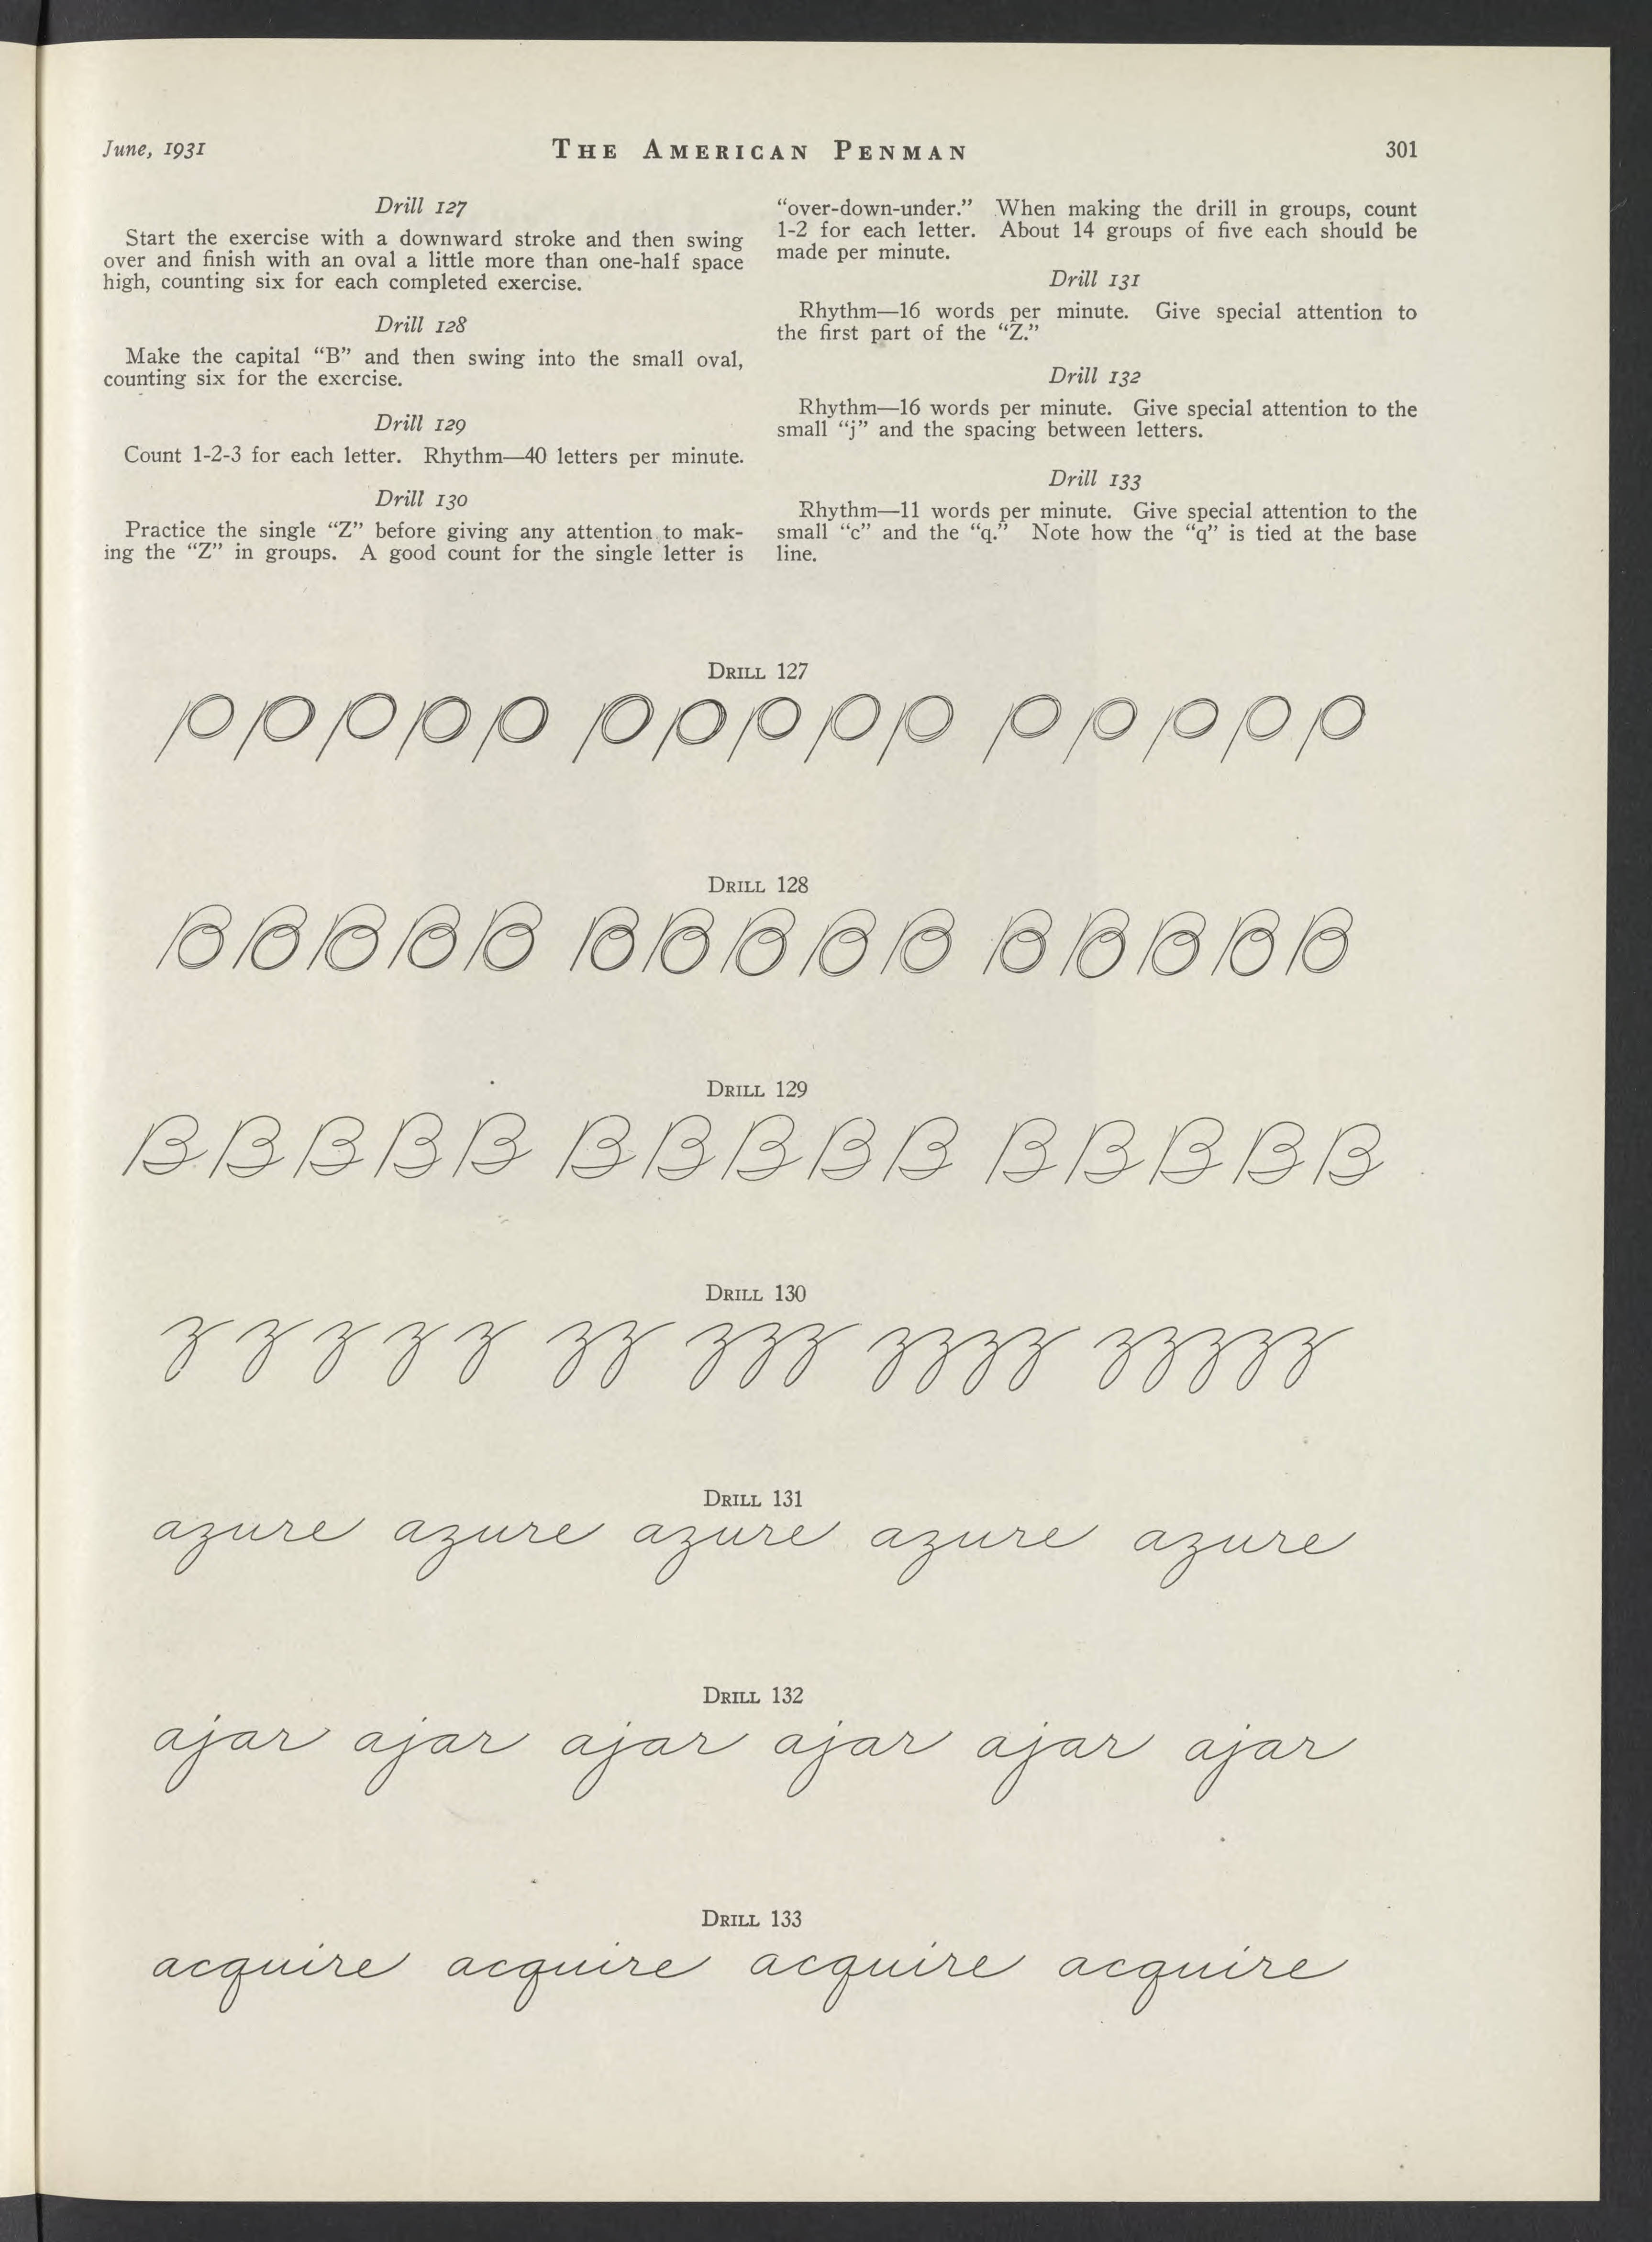 June, 1931 THE AMERICAN PENMAN 301
Drill 127
Start the exercise with a downward stroke and then swing
over and finish with an oval a little more than one-half space
high, counting six for each completed exercise.
Drill 128
Make the capital “B” and then swing into the small oval,
counting six for the exercise.
Drill 129
Count 1-2-3 for each letter. Rhythm—40 letters per minute.
Drill 130
Practice the single “Z” before giving any attention to mak-
ing the “Z” in groups. A good count for the single letter is
“over-down-under.” When making the drill in groups, count
1-2 for each letter. About 14 groups of five each should be
made per minute.
Drill 131
Rhythm—16 words per minute. Give special attention to
the first part of the “Z.”
Drill 132
Rhythm—16 words per minute. Give special attention to the
small “j” and the spacing between letters.
Drill 133
Rhythm—11 words per minute. Give special attention to the
small “c” and the “q.” Note how the “q” is tied at the base
line.
DRILL 127
P P P P P P P P P P P P P P P
DRILL 128
B B B B B B B B B B B B B B B
DRILL 129
B B B B B B B B B B B B B B B
DRILL 130
z z z z z zz zzz zzzz zzzzz
DRILL 131
azure azure azure azure azure
DRILL 132
ajar ajar ajar ajar ajar ajar
DRILL 133
acquire acquire acquire acquire